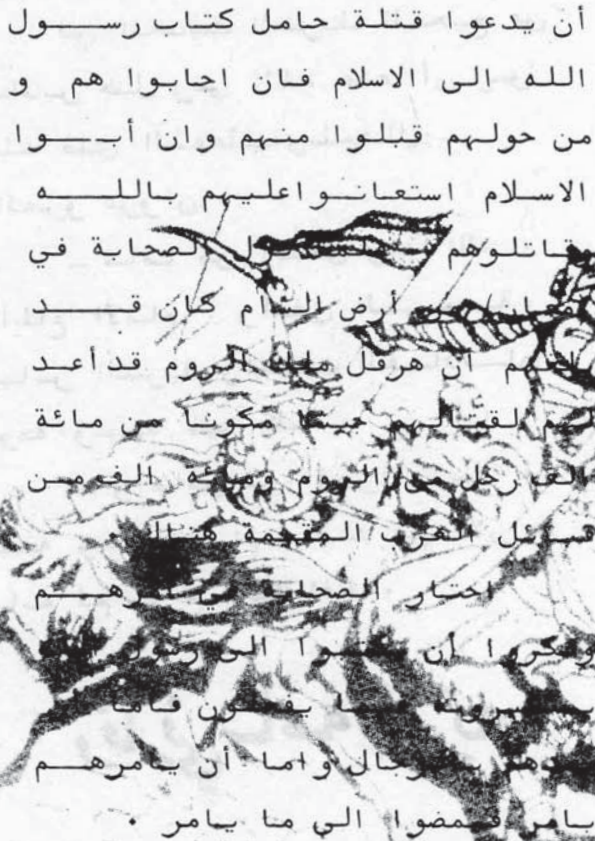 أن يدعو قتلة حامل كتاب رسول
الله الى الاسلام فان اجابوا هم و
من حولهم قبلوا منهم وان أبوا
الاسلام استعانوا عليهم بالله
وقاتلوهم الصحابة في
أرض الشام كان قد
ان هرقل ملك الروم قد أعد
لهم لقتالهم جيشا مكونا من مائة
الف رجل من الروم ومائة الف من
قبائل العرب المقيمة هناك ٠
احتار الصحابة في أمرهم
وفكروا أن الى رسول
يفعلون فاما
واما أن يامرهم
بامر فمضوا الى ما يامر ٠